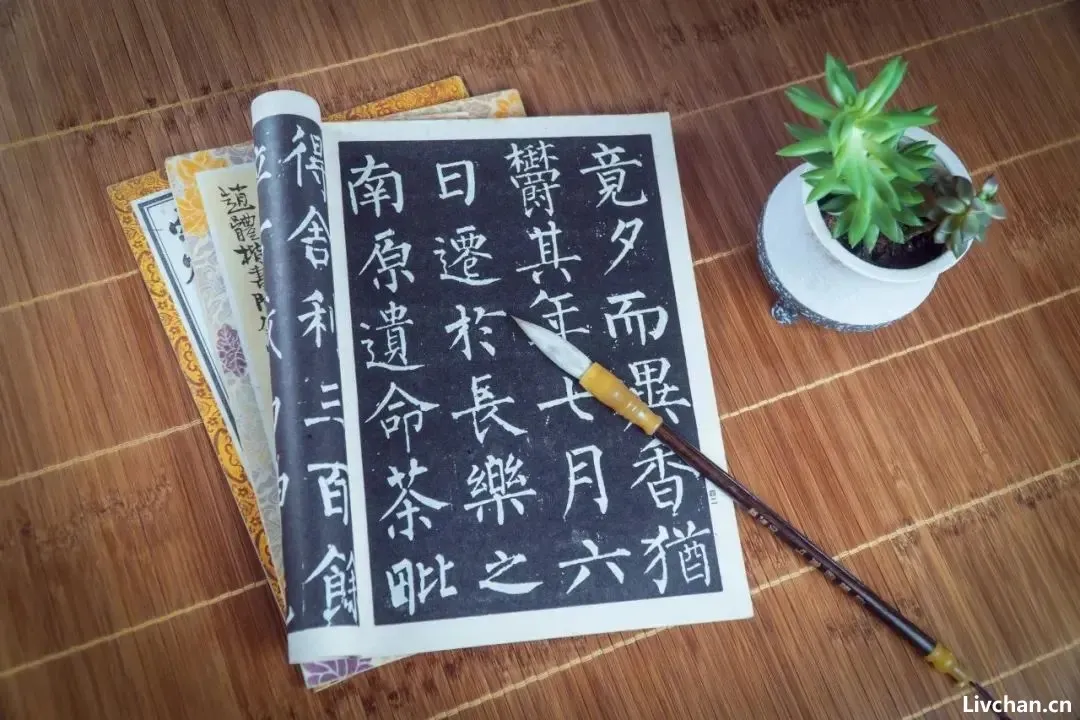 竟夕而異香猶
欝其年七月六
日遷於長樂之
南原遺命茶毗
得舍利三百餘
體楷書
Livchan.cn